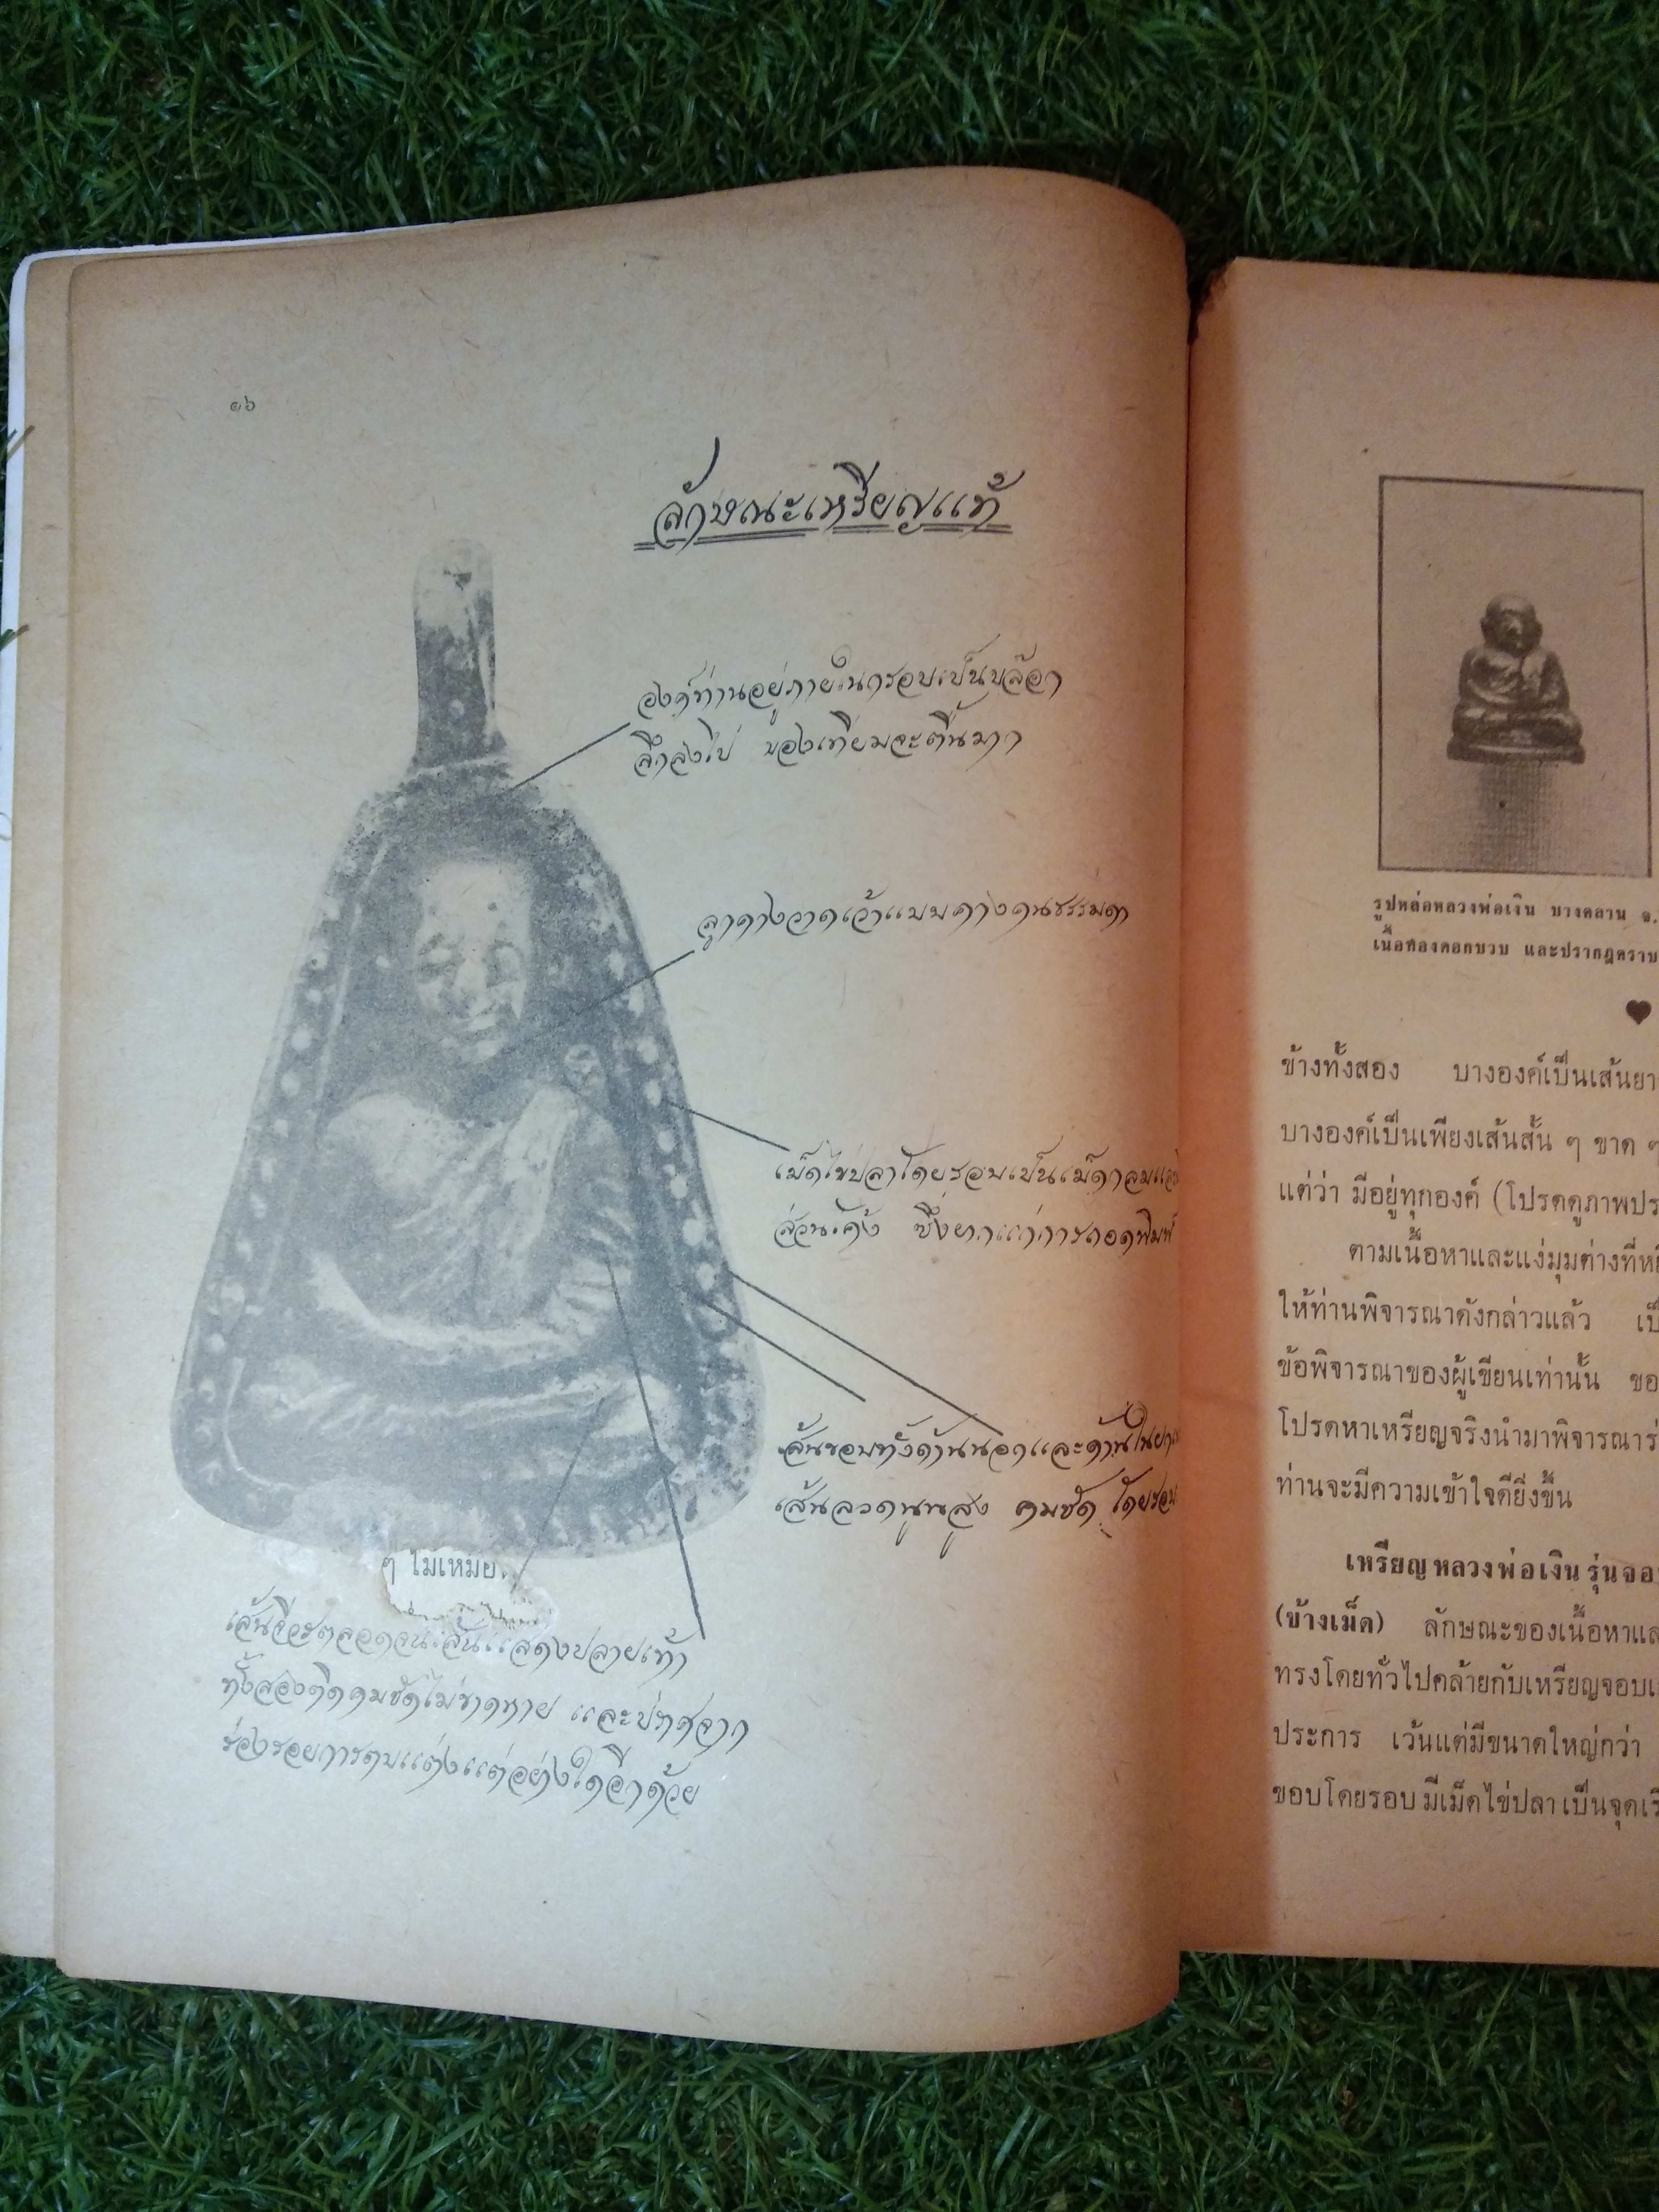 ๑๖
ลักษณะเหรียญแท้
องค์ท่านอยู่ภายในกรอบเป็นบล๊อก
ลึกลงไป ของเทียมจะตื้นมาก
ลูกคางวาดเว้าแบบคางคนธรรมดา
เม็ดไข่ปลาโดยรอบเป็นเม็ดกลม
ส่วนโค้ง ซึ่งยากแก่การถอดพิมพ์
เส้นขอบทั้งด้านนอกและด้านใน
เส้นลวดนูนสูง คมชัด โดยรอบ
ๆ ไม่เหมือ
เส้นจีวรตลอดจนเส้นแสดงปลายเท้า
ทั้งสองติดคมชัดไม่ขาดหาย และปราศจาก
ร่องรอยการตบแต่งแต่อย่างใดอีกด้วย
รูปหล่อหลวงพ่อเงิน บางคลาน จ.
เนื้อทองดอกบวบ และปรากฎคราบ
ข้างทั้งสอง บางองค์เป็นเส้นยา
บางองค์เป็นเพียงเส้นสั้น ๆ ขาด ๆ
แต่ว่า มีอยู่ทุกองค์ (โปรดดูภาพปร
ตามเนื้อหาและแง่มุมต่างที่หยิ
ให้ท่านพิจารณาดังกล่าวแล้ว เป็
ข้อพิจารณาของผู้เขียนเท่านั้น ขอ
โปรดหาเหรียญจริงนำมาพิจารณาร่
ท่านจะมีความเข้าใจดียิ่งขึ้น
เหรียญหลวงพ่อเงิน รุ่นจอ
(ข้างเม็ด) ลักษณะของเนื้อหาแล
ทรงโดยทั่วไปคล้ายกับเหรียญจอบเ
ประการ เว้นแต่มีขนาดใหญ่กว่า
ขอบโดยรอบมีเม็ดไข่ปลาเป็นจุดเรี